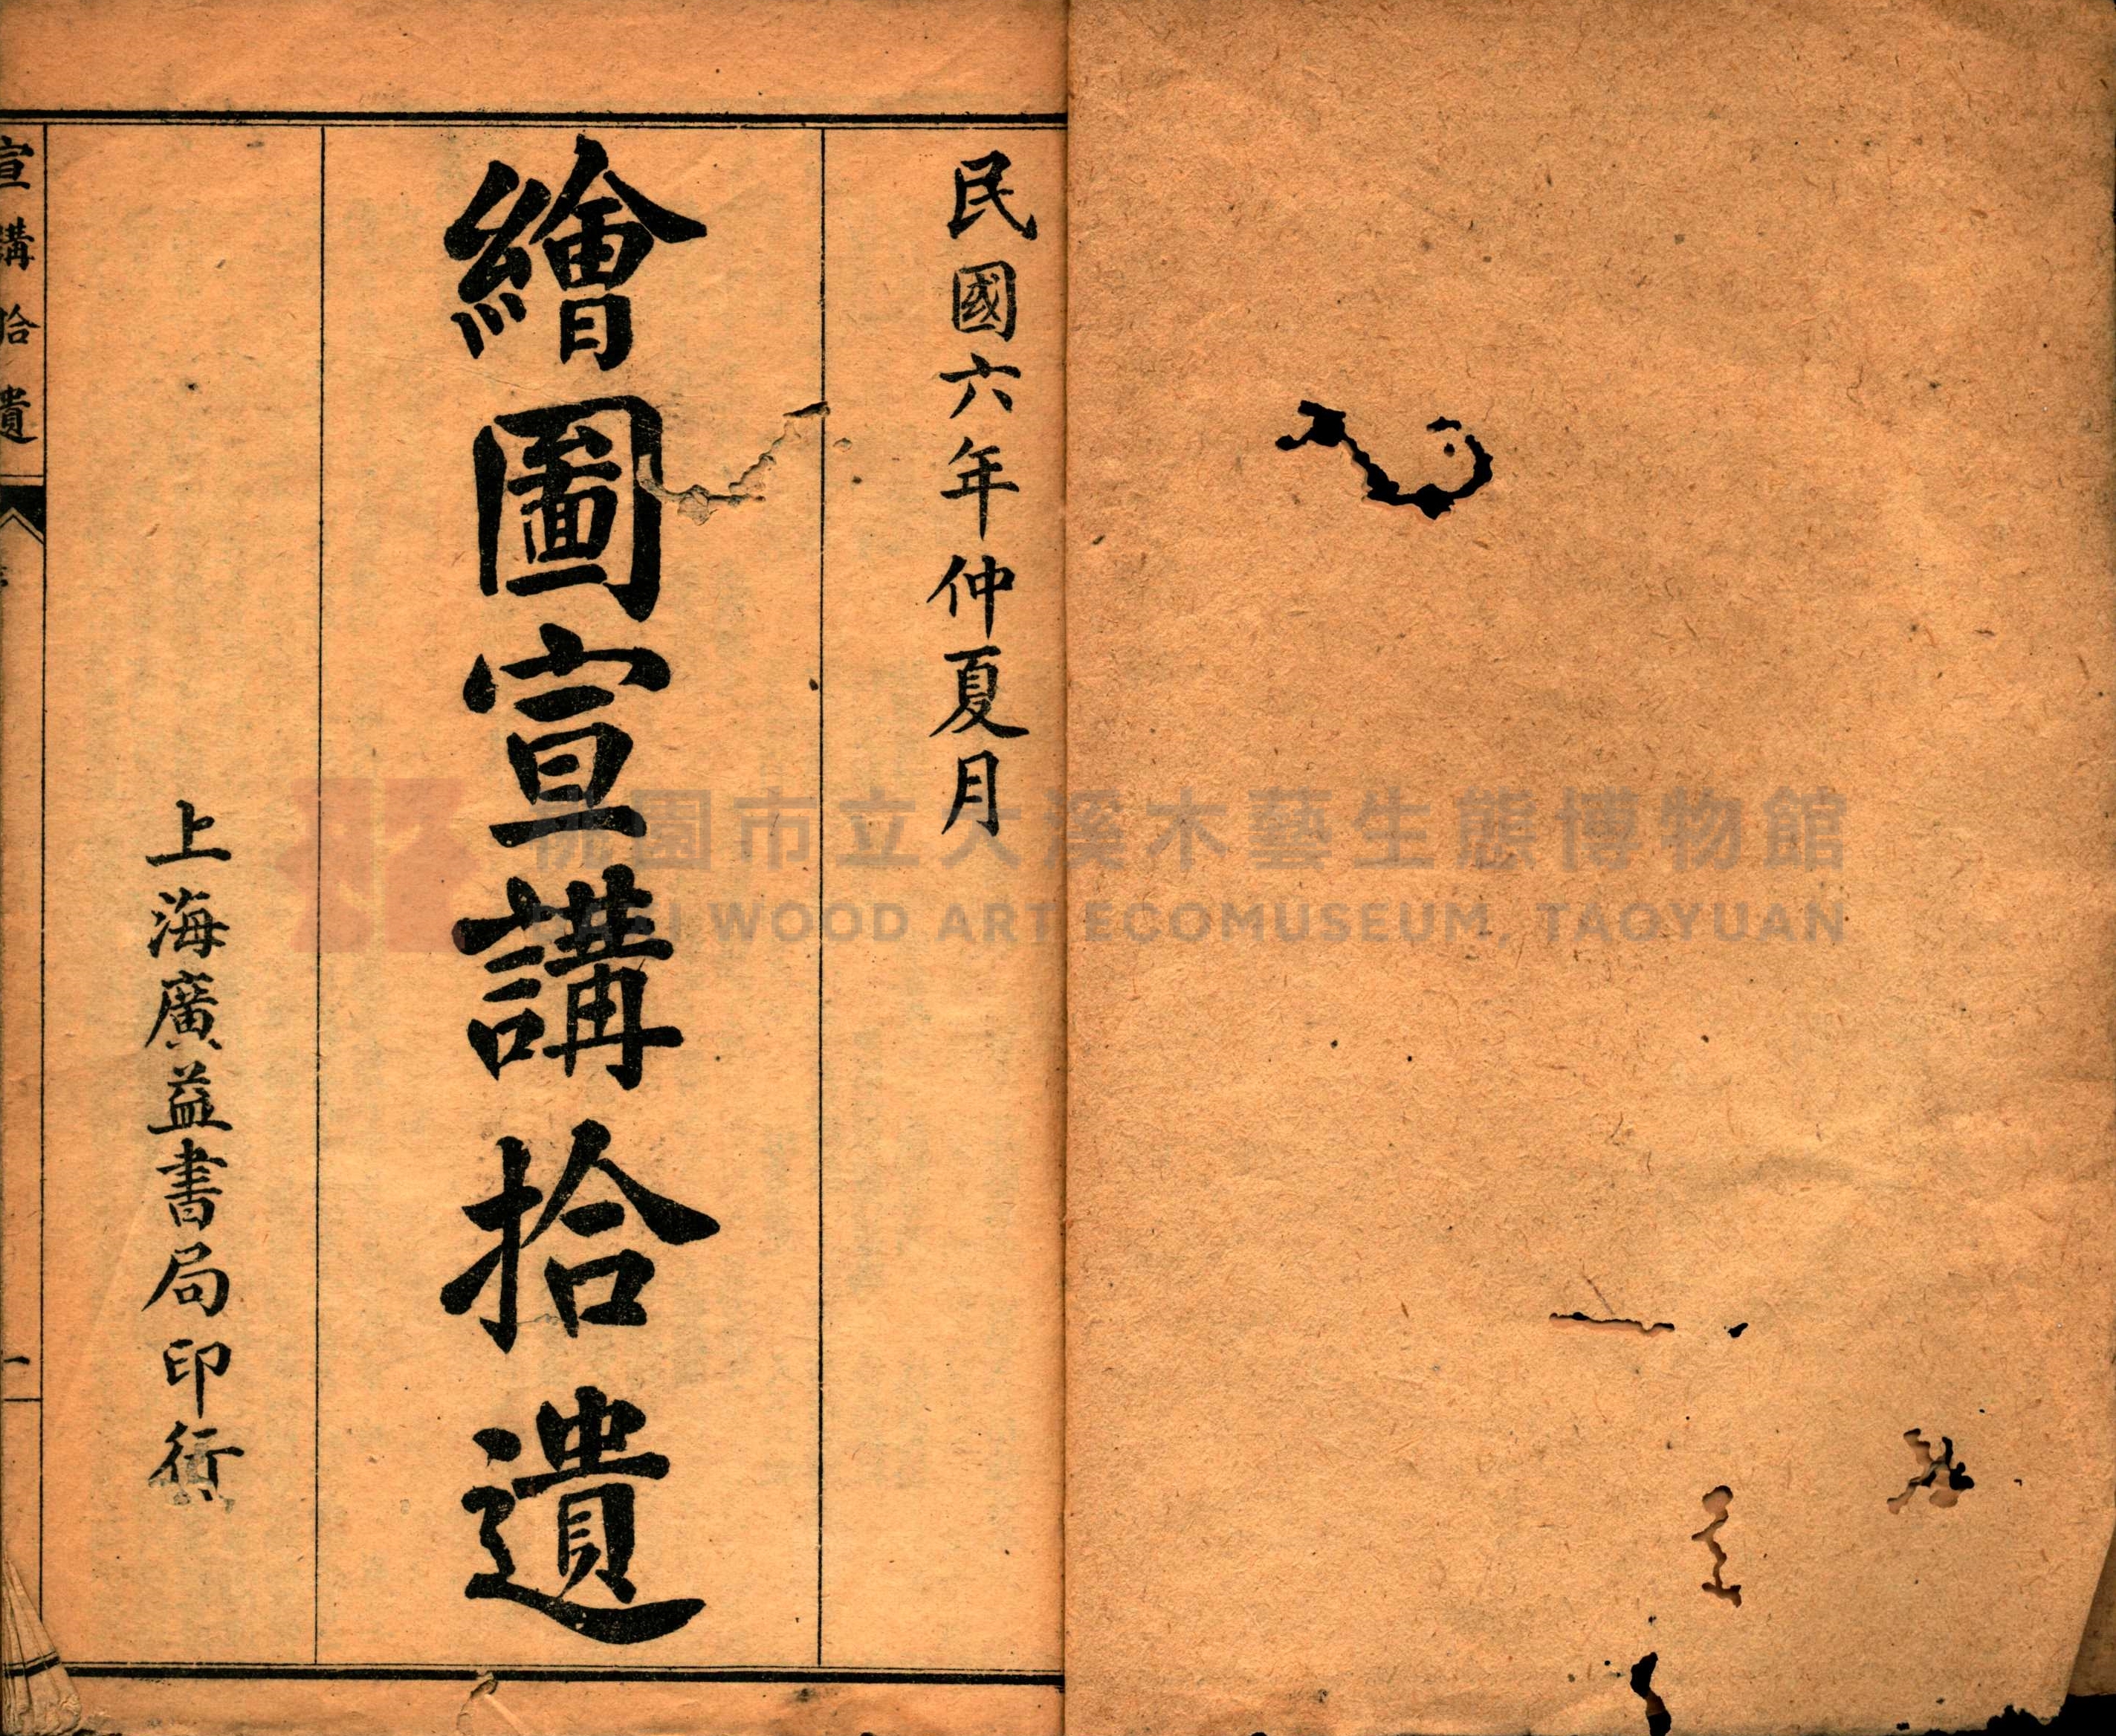 民國六年仲夏月
繪圖宣講拾遺
上海廣益書局印行
宣講拾遺
一
桃園市立大溪木藝生態博物館
DAXI WOOD ART ECOMUSEUM, TAOYUAN